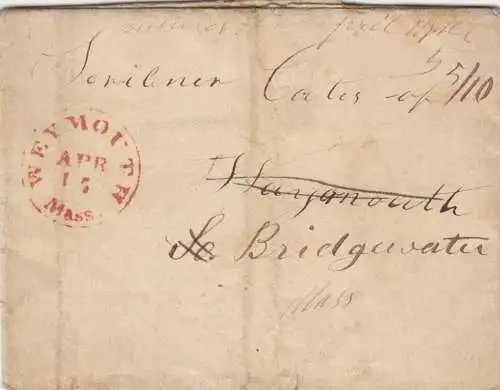 Scribner Cates of
5
5/10
WEYMOUTH
APR
17
Mass.
Waymouth
So. Bridgewater
Mass